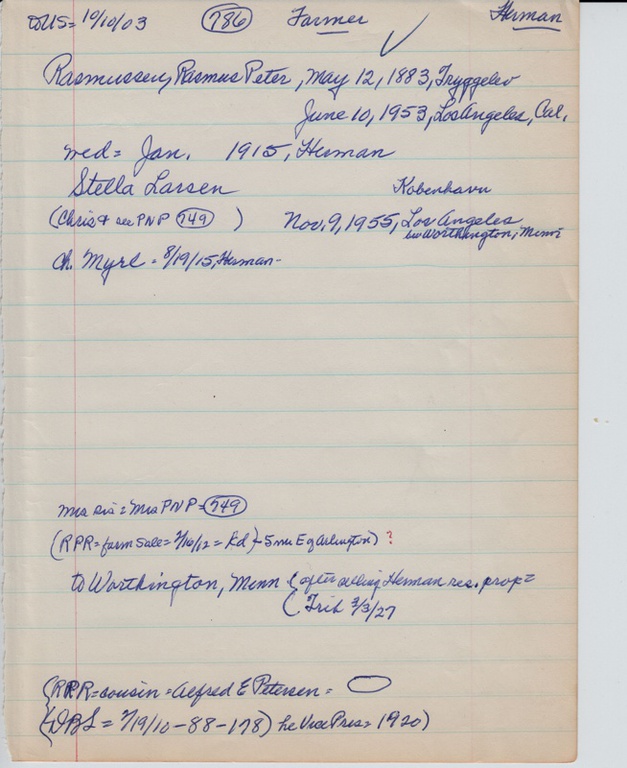 toUS= 10/10/03 786 Farmer Herman
Rasmussen, Rasmus Peter, May 12, 1883, Tryggelev
June 10, 1953, Los Angeles, Cal.
wed= Jan. 1915, Herman
Stella Larsen Kobenhavn
(Chris + see PNP 749 ) Nov. 9, 1955, Los Angeles
bur Worthington, Minn
Ch. Myrl = 8/19/15, Herman-
mrs sis = Mrs PNP = 749
(RPR=farm sale= /16/12 = Kd)-5 mi E of Arlington) ?
to Worthington, Minn (after selling Herman res. prop=
( Trib 3/3/27
(RPR=cousin=Alfred E Petersen=
(DBL = /19/10-88-178) he Vice Pres= 1920)